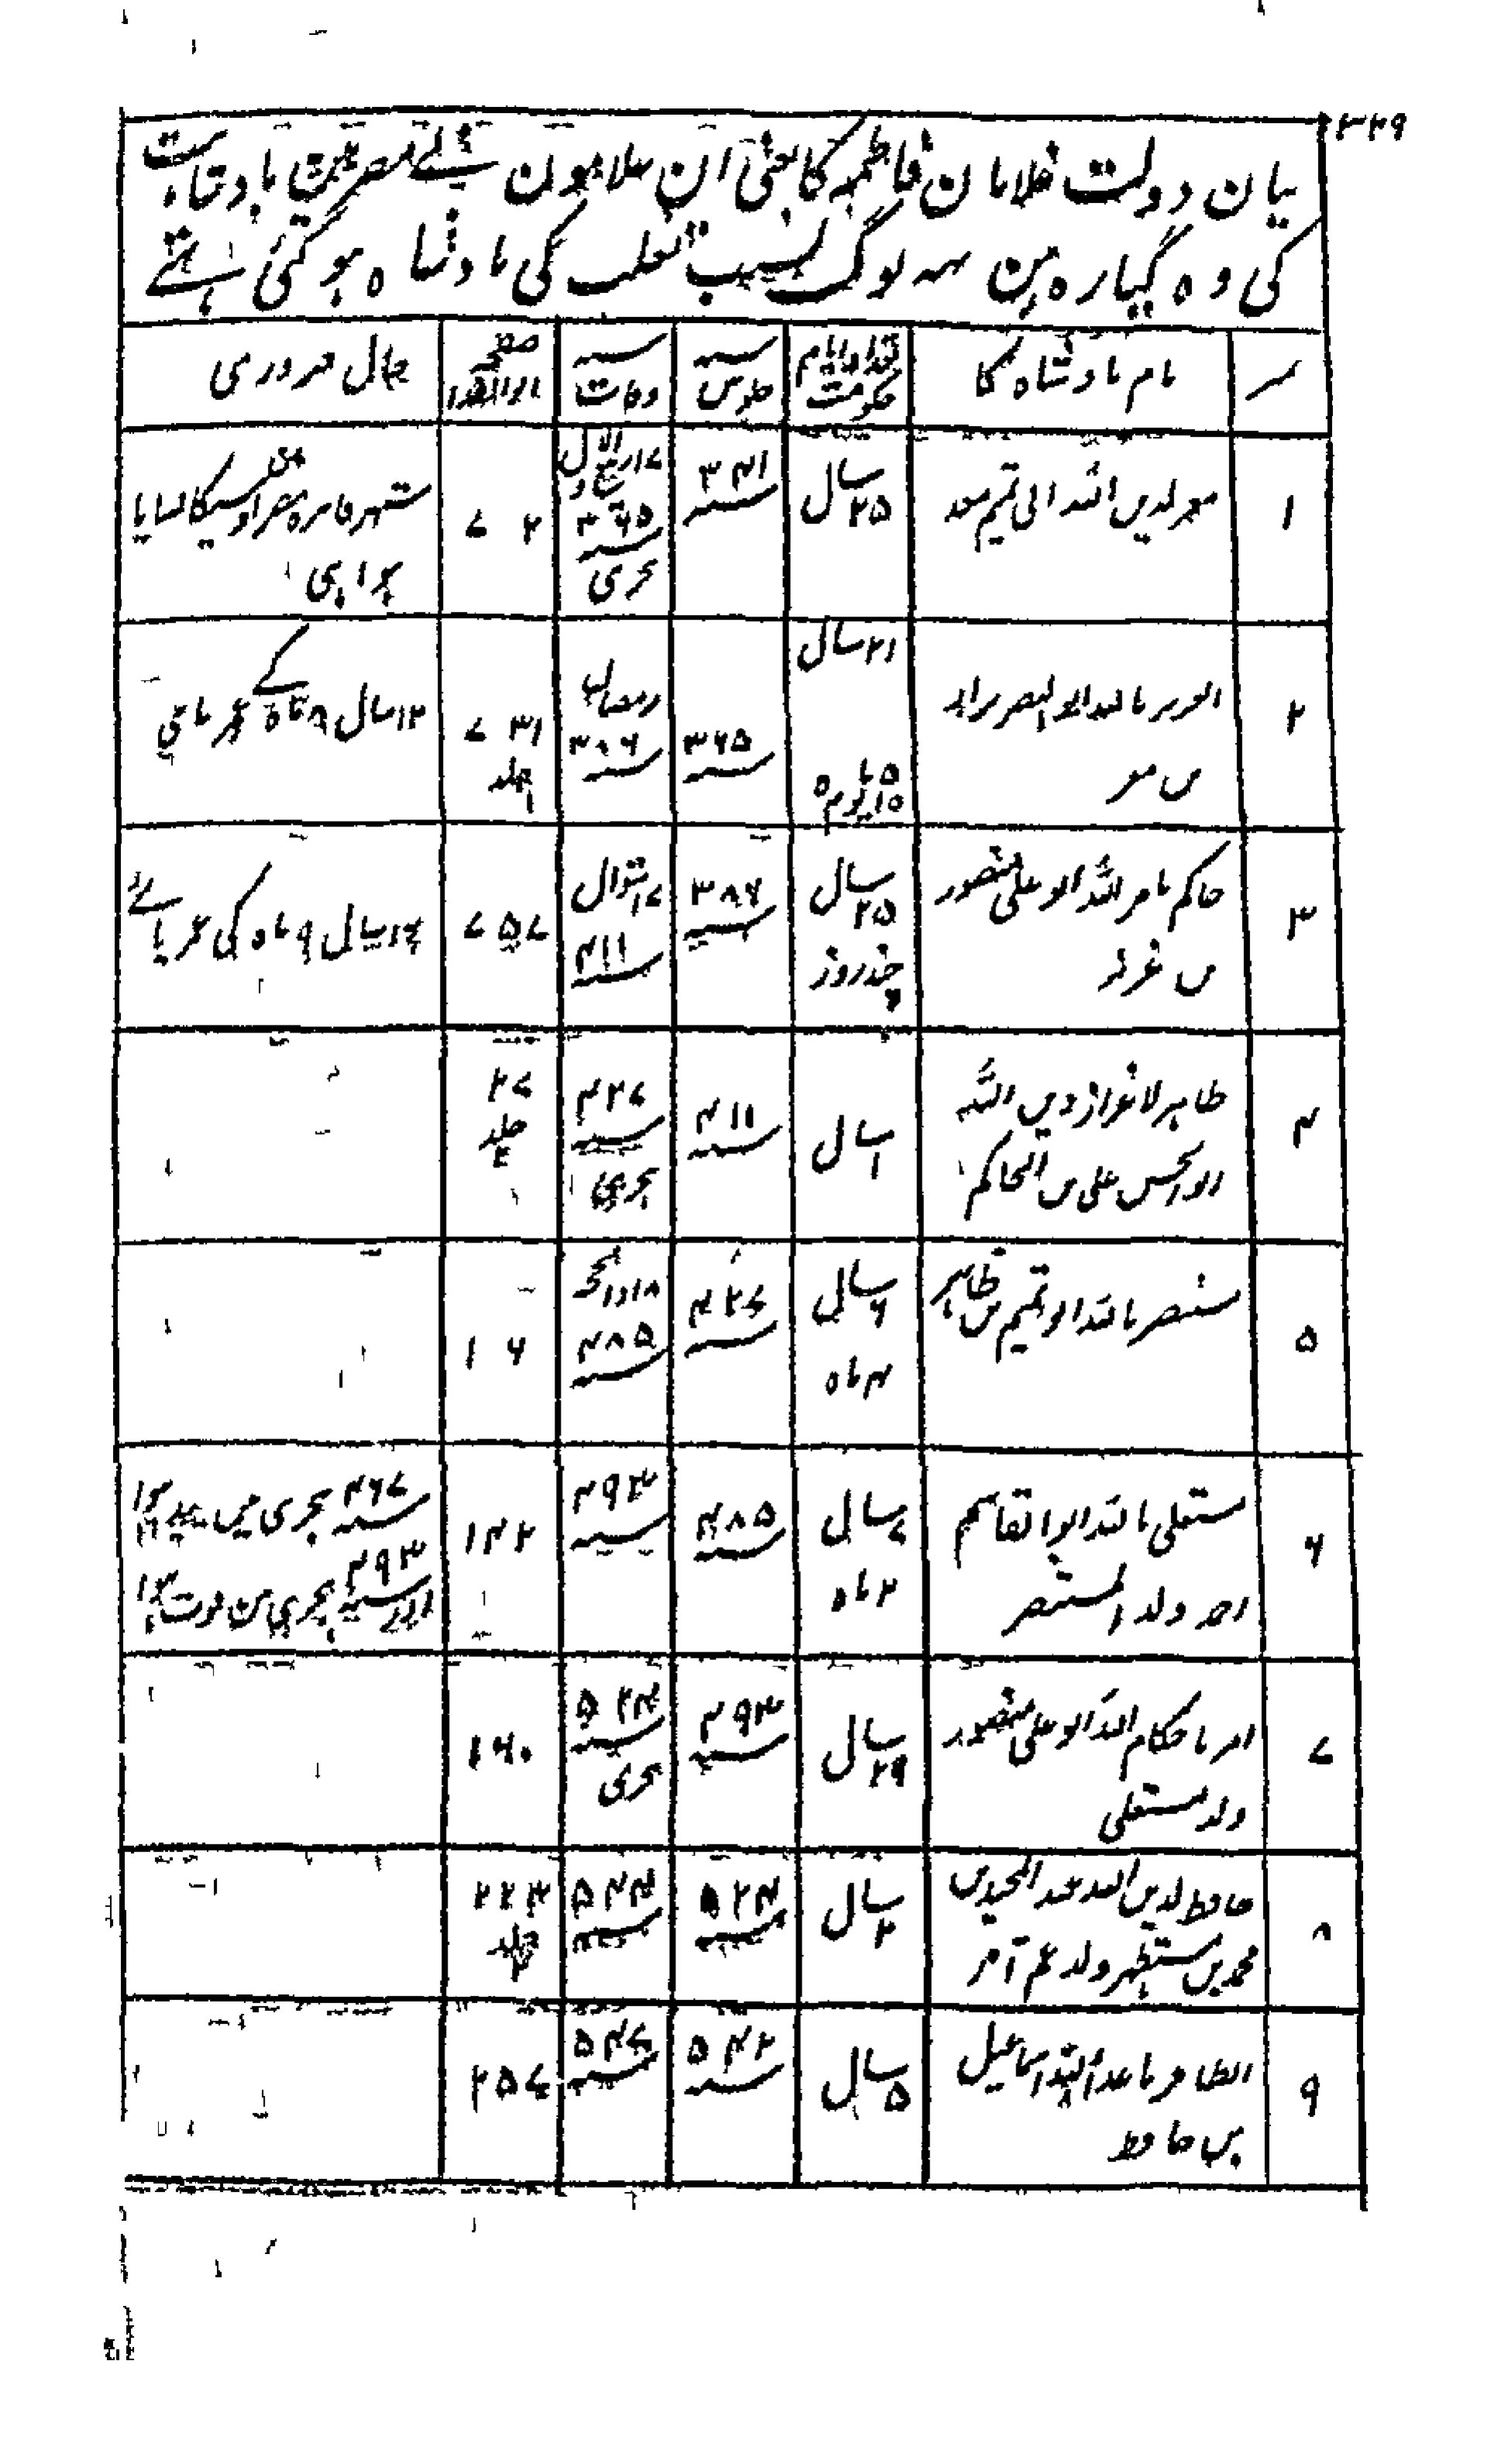 ۳۲۹
بیان دولت غلامان فاطمیہ کا یعنی ان غلامون نے مصر مین بادشاہت
کی وہ گیارہ ہین یہ لوگ بسبب تغلب کی بادشاہ ہوگئی تھے
نام بادشاہ کا
تعداد ایام حکومت
سنہ جلوس
سنہ وفات
صفحہ ابو الفدا
حال ضروری
۱
معز لدین اللہ ابی تمیم معد
۲۵ سال
۳۴۱ سنہ
۱۷ ربیع الاول
۳۶۵ سنہ
ہجری
۷ ۲
شہر قاہرہ
۲
العزیز باللہ ابو النصر نزار
بن معز
۲۱ سال
۵ ماہ
۱۵ یوم
۳۶۵ سنہ
رمضان
۳۸۶ سنہ
۷ ۳۱
جلد
۱۲ سال ۸ ماہ کے عمر پائی
۳
حاکم بامر اللہ ابو علی منصور
بن عزیز
۲۵ سال
چند روز
۳۸۶ سنہ
۱۷ شوال
۴۱۱ سنہ
۷۵۷
سال ۹ ماہ کی عمر پائے
۴
ظاہر لاعزاز دین اللہ
ابو الحسن علی بن الحاکم
سال
۴۱۱ سنہ
۴۲۷ سنہ
ہجری
۲۷
جلد
۵
مستنصر باللہ ابو تمیم بن ظاہر
۶ سال
۴ ماہ
۴۲۷ سنہ
۱۸ ذی الحجہ
۴۸۵ سنہ
۱ ۶
۶
مستعلی باللہ ابو القاسم
احمد ولد المستنصر
۷ سال
۲ ماہ
۴۸۵ سنہ
۴۹۳ سنہ
۱۴۲
۴۶۷ سنہ ہجری میں پیدا ہوا
اور ۴۹۳ سنہ ہجری مین فوت ہوا
۷
امر باحکام اللہ ابو علی منصور
ولد مستعلی
۲۹ سال
۴۹۳ سنہ
۵۲۴ سنہ
ہجری
۱۶۰
۸
حافظ لدین اللہ عبد المجید بن
محمد بن مستظہر ولد عم آمر
۲ سال
۵۲۴ سنہ
۵۴۴ سنہ
۲۲۳
جلد
۹
الظافر باعداء اللہ اسماعیل
بن حافظ
۵ سال
۵۴۲ سنہ
۵۴۷ سنہ
۲۵۷